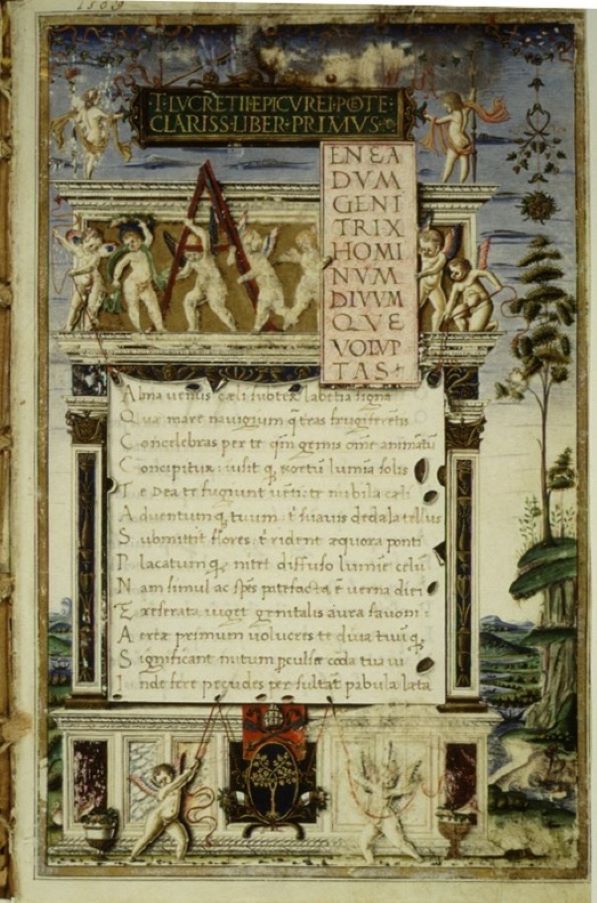 1569
·T·LVCRETII·EPICVREI·POETE·
CLARISS·LIBER·PRIMVS·
A
ENEA
DVM
GENI
TRIX
HOMI
NVM
DIVVM
QVE
VOLVP
TAS
Alma uenus cæli subter labētia signa
Quæ mare nauigium q̃ tras frugiferētis
Concelebras per te qm̄ genus om̄e animātū
Concipitur: uisit q; exortū lumīa solis
Te Dea te fugiunt uēti: te nubila cæli
Aduentum q; tuum: t̄ suauis dedala tellus
Submittit flores: t̄ rident æquora ponti
Placatum q; nitet diffuso lumīe celū
Nam simul ac spēs patefacta ē uerna diei
Exreserata uiget genitalis aura fauoni:
Aeriæ primum uolucres te diua tuū q;
Significant initum pculsæ corda tua ui
Inde fere pecudes per sultāt pabula læta